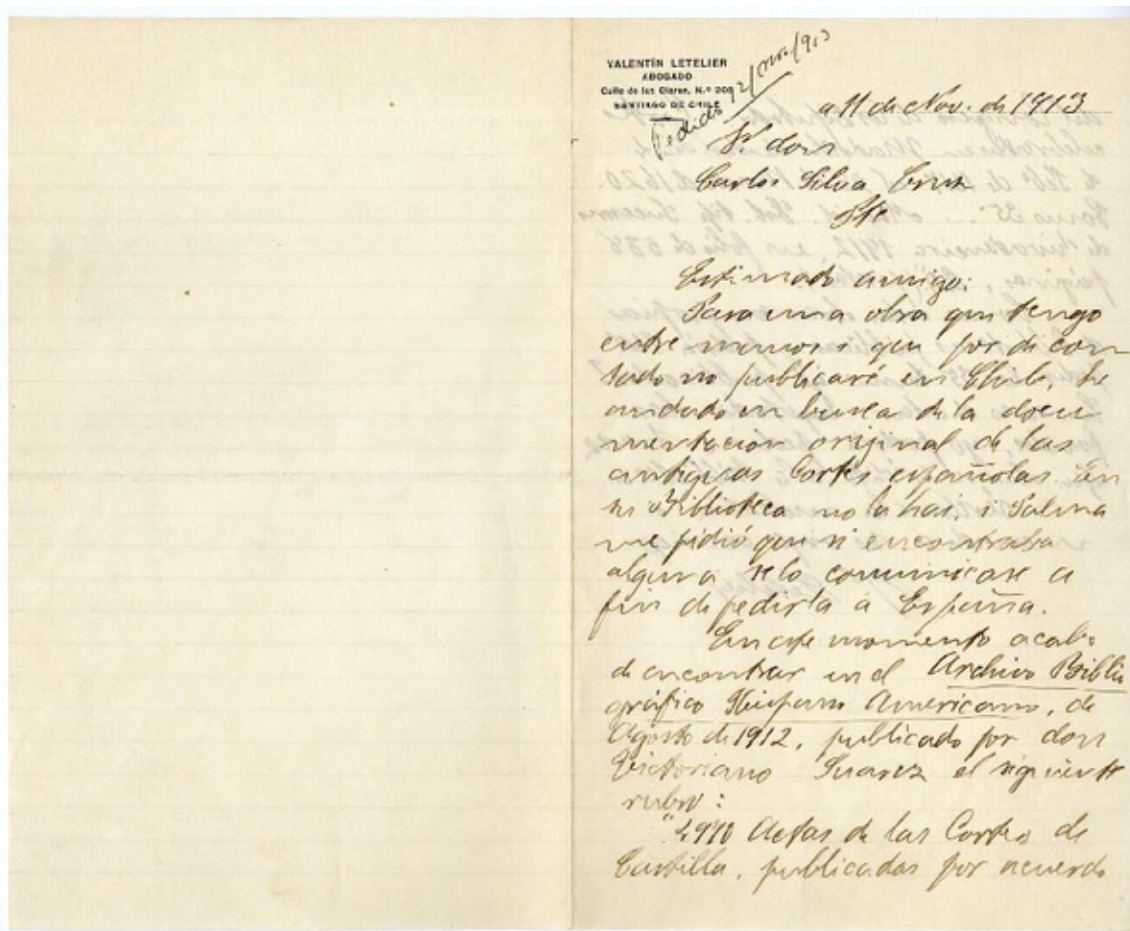 VALENTÍN LETELIER
ABOGADO
Calle de las Claras, N.º 208
SANTIAGO DE CHILE
Pedido 12/nov/913
a 11 de Nov. de 1913
Sr. don
Carlos Silva Cruz
Pte
Estimado amigo:
Para una obra que tengo
entre manos i que por de con
tado no publicaré en Chile, he
andado en busca de la docu
mentacion original de las
antiguas Cortes españolas. En
su Biblioteca no la hai, i Salina
me pidió que si encontraba
alguna se lo comunicase a
fin de pedirla a España.
En este momento acabo
de encontrar en el Archivo Biblio
gráfico Hispano Americano, de
Agosto de 1912, publicado por don
Victoriano Suarez el siguiente
rubro:
Actas de las Cortes de
Castilla, publicadas por acuerdo